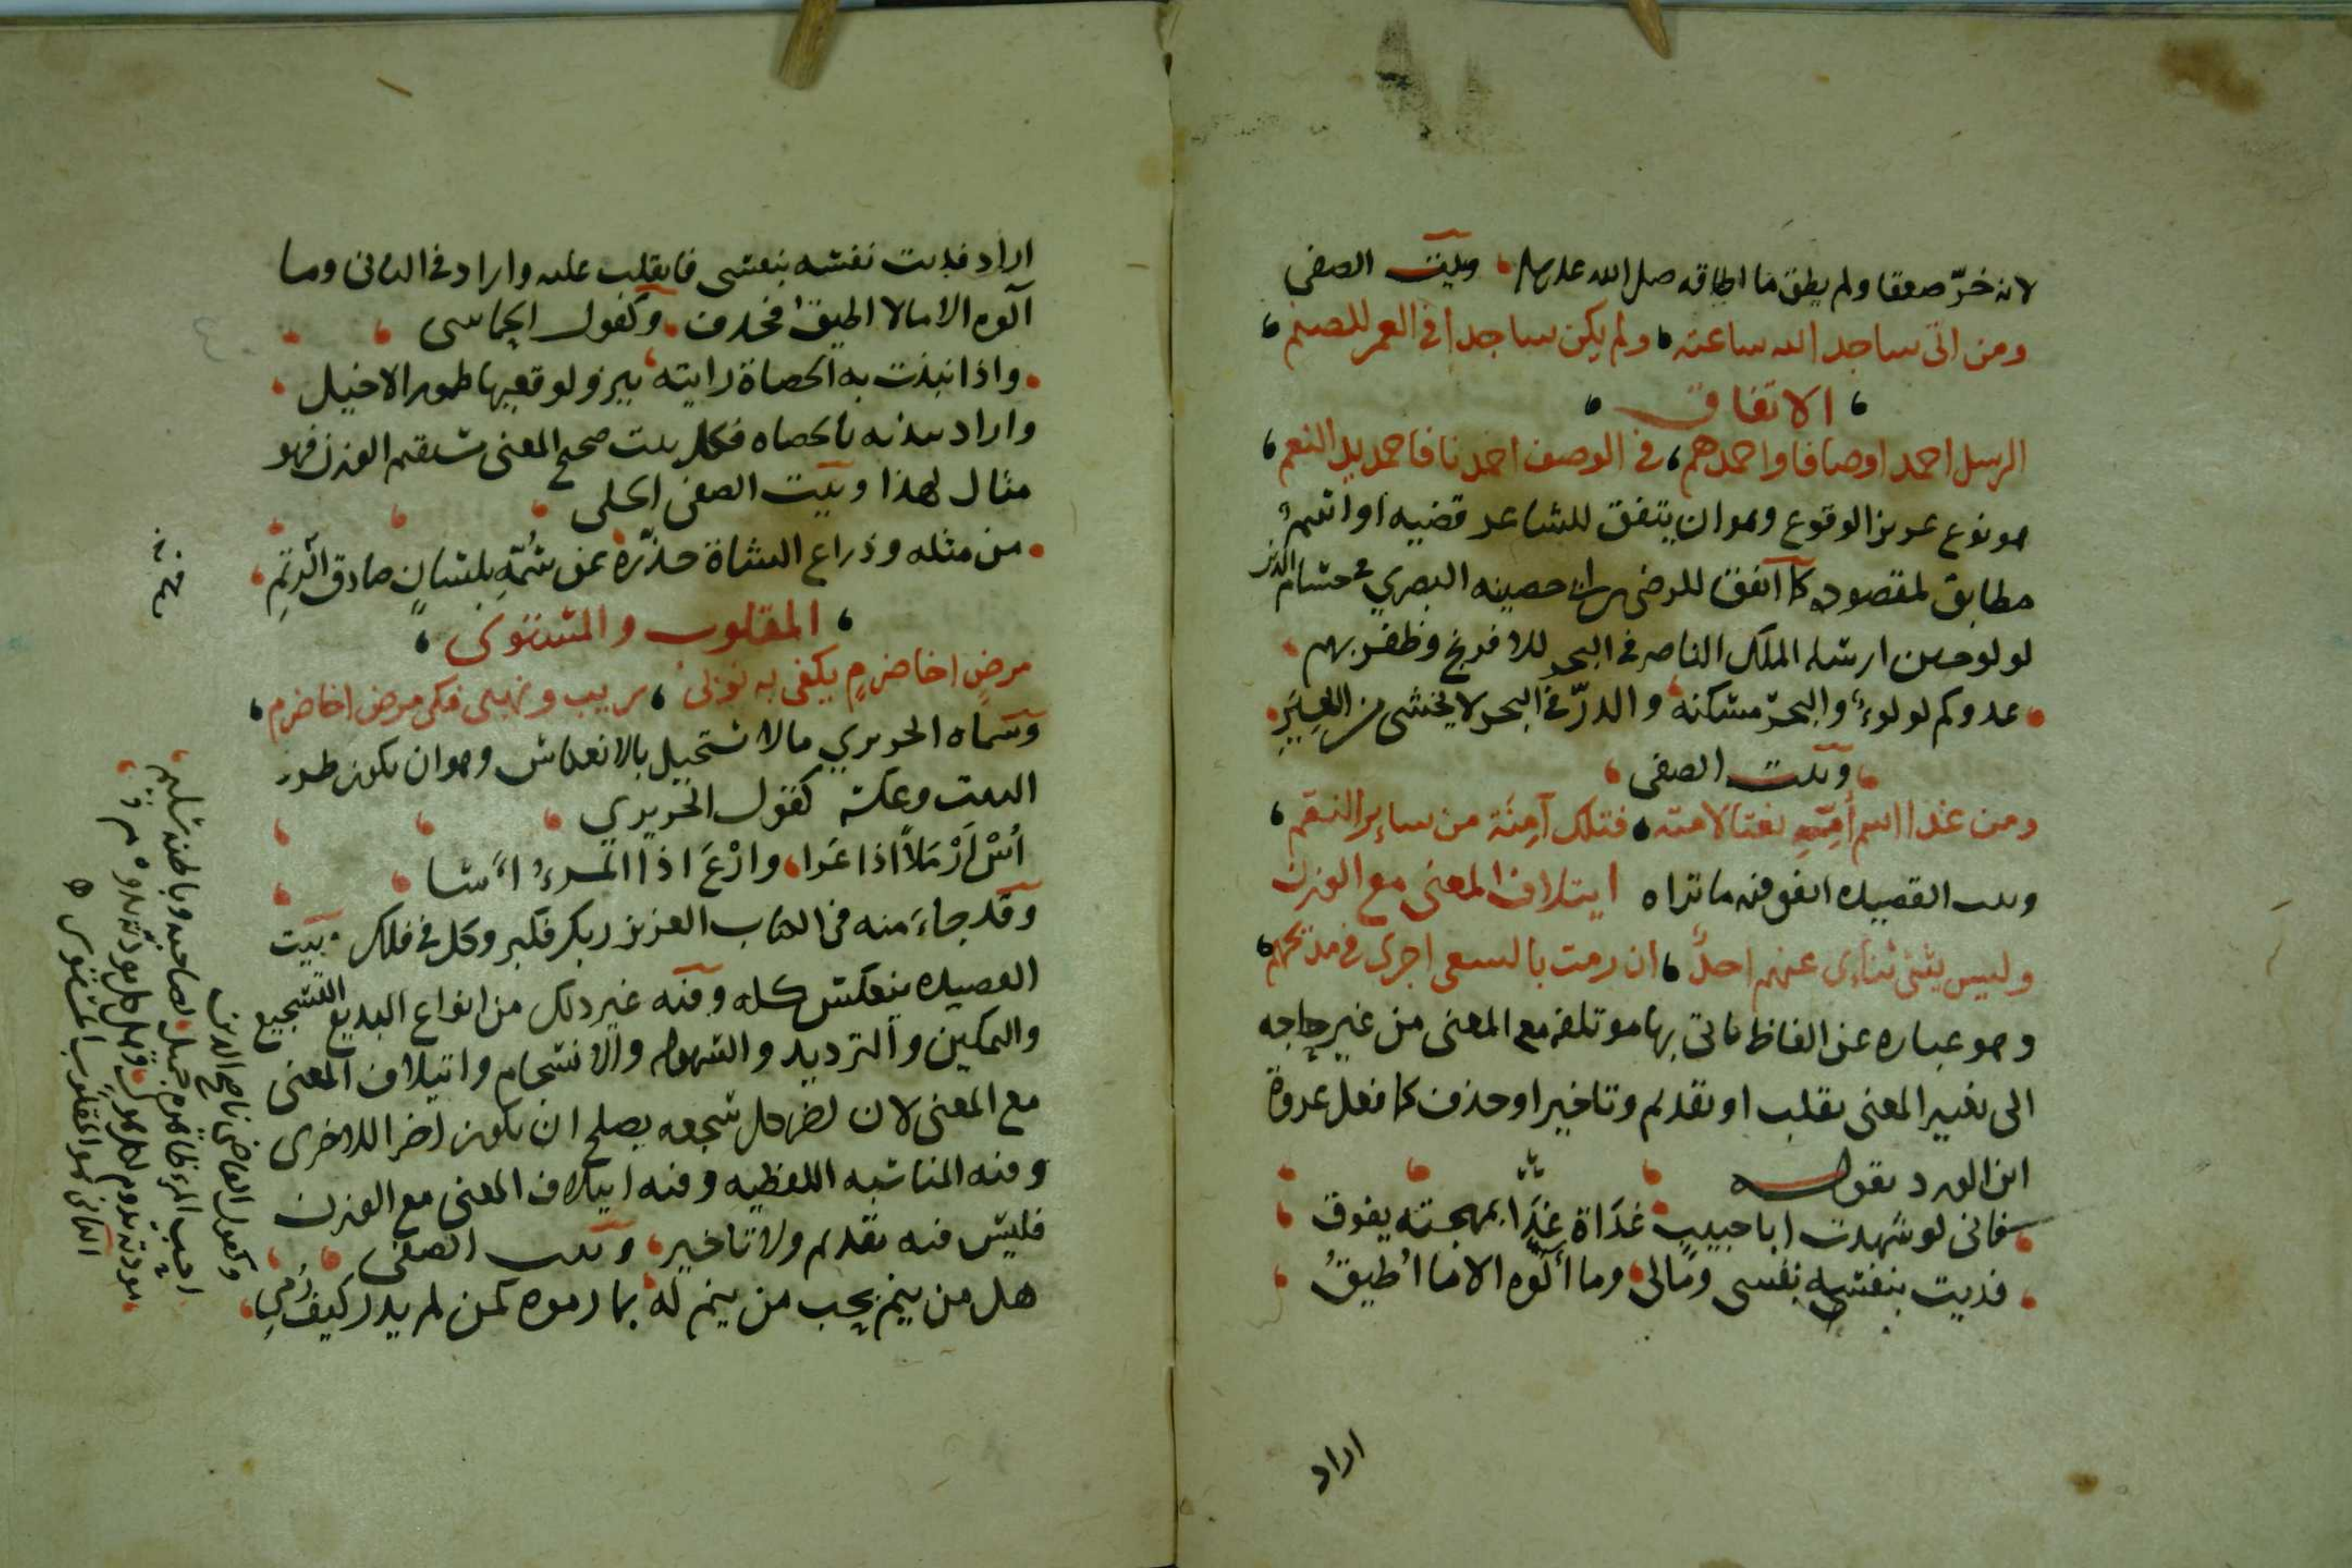 لانه خرّ صعقا ولم يطق ما اطاقه صلى الله عليه وسلم وبيت الصفى
ومن اتى ساجد الله ساعته ولم يكن ساجدا فى العمر للصنم
الاتفاق
الرسل احمد اوصافا واحمدهم فى الوصف احمدنا فاحمد يد النعم
هو نوع عزيز الوقوع وهو ان يتفق للشاعر قضيه او اسم
مطابق لمقصوده كما اتفق للرضى بن ابى حصينه البصري فى حسام الدين
لولو حين ارسله الملك الناصر فى البحر للافرنج وظفر بهم
عدوكم لولوء والبحر مسكنه والدرّ فى البحر لا يخشى من الغير
وبيت الصفى
ومن غدا اسم أمّه نعتا لامته فتلك آمنة من ساير النقم
وبيت القصيده اتفق فيه ما تراه ايتلاف المعنى مع الوزن
وليس يثنى ثناءى عنهم احدٌ ان رمت بالسعى اجرى فى مديحهم
وهو عباره عن الفاظ ياتى بها موتلفه مع المعنى من غير حاجه
الى تغيير المعنى بقلب او تقديم وتاخير او حذف كما فعل عروة
ابن الورد بقوله
فانى لو شهدت ابا حبيب غداة غدا بمهجته يفوق
فديت بنفسه نفسى ومالى وما آلوه الا ما اُطيقُ
اراد
اراد فديت نفسه بنفسى فانقلب عليه واراد فى الثانى وما
آلوه الا مالا اطيق فحذف وكقول الحماسى
واذا نبذت به الحصاة رايته ينزو لوقعها طمور الاخيل
واراد نبذته بالحصاه فكل بيت صحيح المعنى مستقيم الوزن فهو
مثال لهذا وبيت الصفى الحلى
من مثله وذراع الشاة حذّره عن سُمّه بلسانٍ صادق الرتم
المقلوب والمستوى
مرضٍ اخا ضرمٍ يكفى به نوبى بريب ونهيى فكى مرض اخا ضرم
وسماه الحريري مالا تستحيل بالانعكاس وهو ان يكون طرد
البيت وعكسه كقول الحريري
اُسْ اَرْمَلاً اذا عَرا وارْعَ اذا المرءُ اَسا
وقد جاء منه فى الكتاب العزيز ربك فكبر وكل فى فلك وبيت
القصيده ينعكس كله وفيه غير ذلك من انواع البديع التسجيع
والتمكين والترديد والسهوله والانسجام وايتلاف المعنى
مع المعنى لان كل سجعه يصلح ان يكون اخر اللاخرى
وفيه المناسبه اللفظيه وفيه ايتلاف المعنى مع الوزن
فليس فيه تقديم ولا تاخير وبيت الصفى
هل من ينم يحب من ينم له بما رموه كمن لم يدر كيف رُمى
وكقول القاضى ناصح الدين
احب المرء ظاهره جميل لصاحبه وباطنه سليم
مودته تدوم لكل هولٍ وهل كل مودّته تدوم
الثانى هو المقلوب المستوى